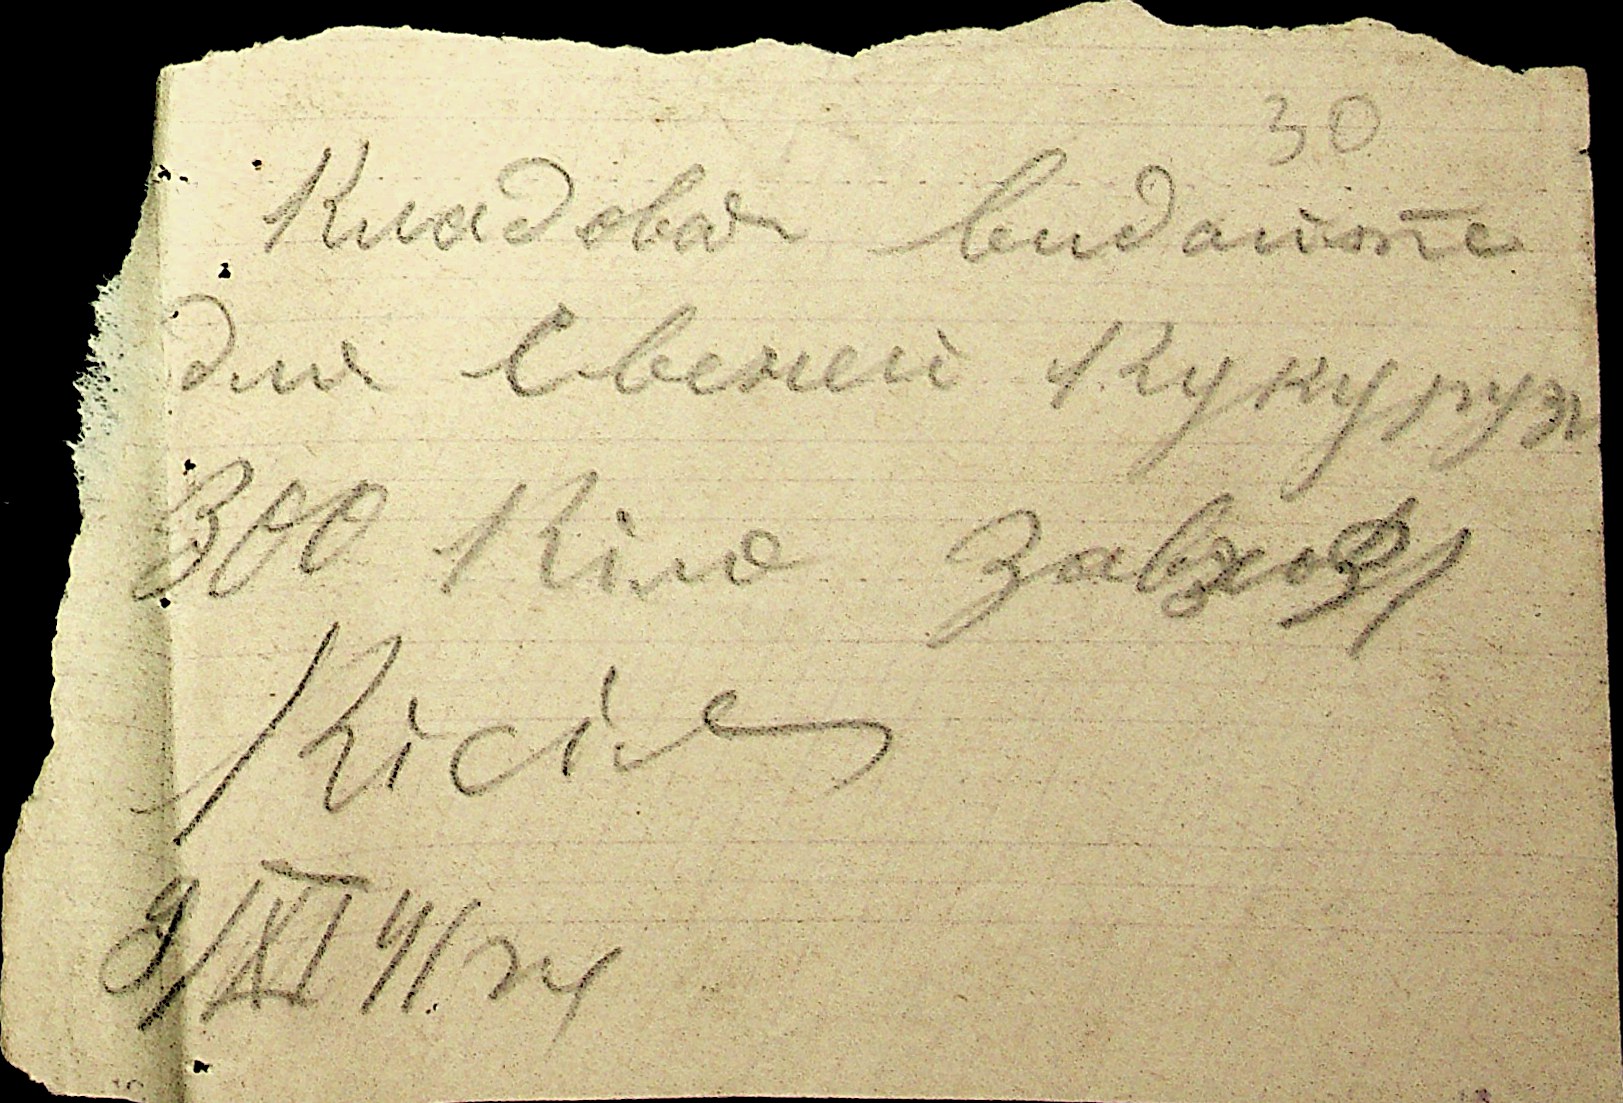 30
Кладовая видайоте
для Свеней Кукурузи
300 Кіло Завхоз/
Кісіль
9/XI 41 г/